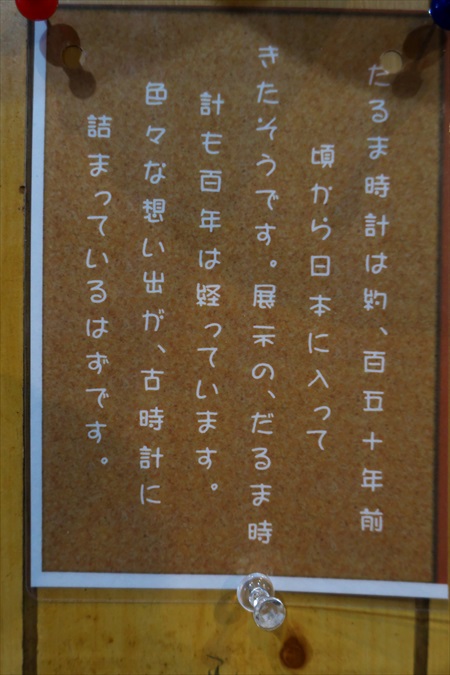 だるま時計は約、百五十年前
頃から日本に入って
きたそうです。展示の、だるま時
計も百年は経っています。
色々な想い出が、古時計に
詰まっているはずです。